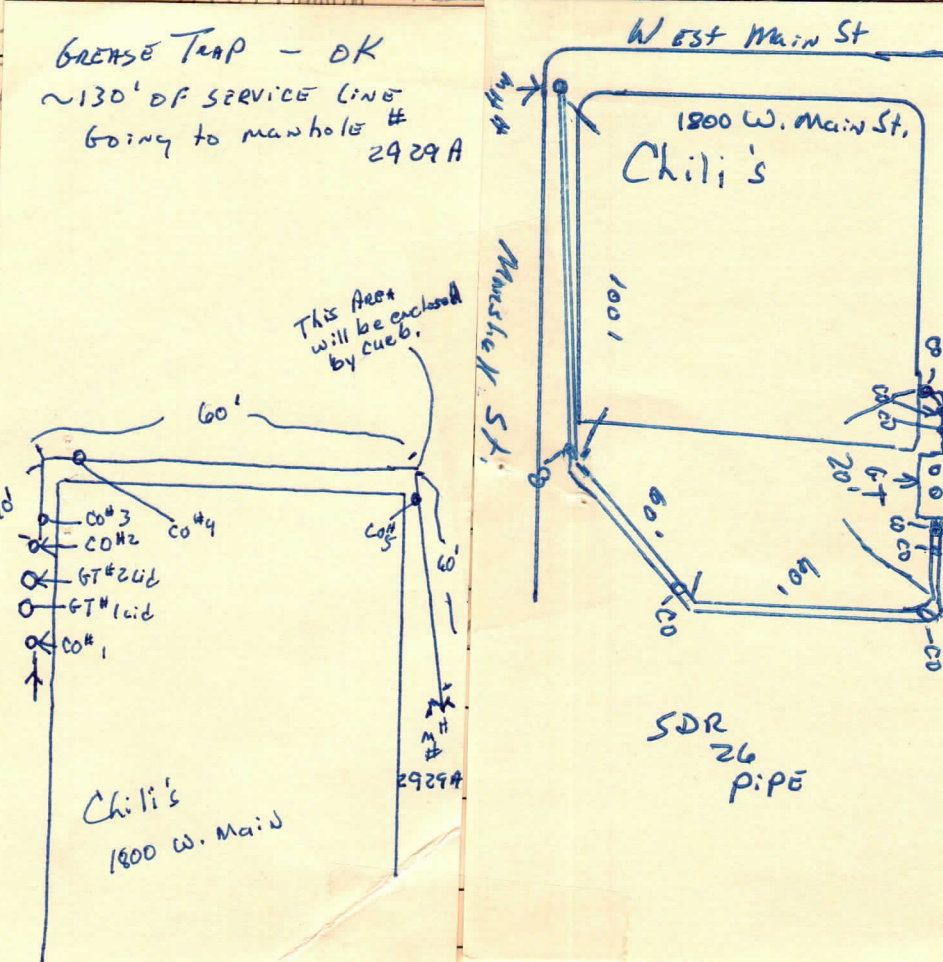 GREASE TRAP - OK
~130' OF SERVICE LINE
GOING to manhole #
2929A
This AREA
will be enclosed
by curb.
60'
CO#3
CO#2
GT#2 Lid
GT#1 Lid
CO#1
CO#4
CO#5
60'
MH
#
2929A
Chili's
1800 W. Main
WEST Main St
MH#
1800 W. Main St.
Chili's
Marshall St.
100'
CO
CO
CO
20'
GT
CO
CO
60'
60'
CO
CO
SDR
26
PIPE